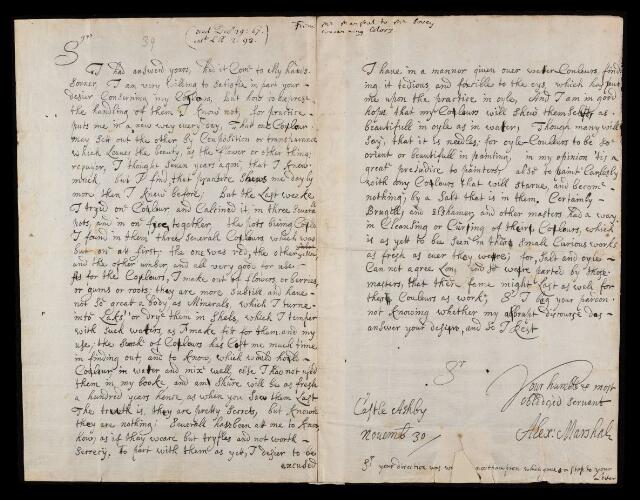 From Mr Marshal to Mr Povey
concerning Colors
(read Dec. 19: 67.
Sr
39
I had answered yours, had it Com to My hands
sooner, I am very willing to satisfie in part your
desier Concerning my Colours, but how to express
the handling of them I know not, for practice
puts me in a new way every day, That one Colour
may set out the other by Composition or transparance
which Loves the beauty, as the flower or other thing
requier, I thought seven years agon, that I knew
much but I find that practice shews me dayly
more then I knew before; But the Last weeke
I tryed on Colour and Calsined it in three severall
pots, and in on fire together, the pots being Cople
I found in them three severall Colours which was
but on at first; the one was red, the other yellow
and the other umber, and all very good for use
As for the Colours, I make out of flowers, or berries,
or gums or roots; they are more subtile and have
not so great a body as Minerals, which I turne
into Laks or drye them in Shels, which I temper
with such waters, as I make fit for them and my
use; the of Colours has Cost me much time
in finding out, and to know, which would hould
Colour in water and mix well, else I had not used
them in my booke and am shure will be as fresh
a hundred years hence as when you saw them Last
The treuth is, they are pretty secrets, but known
they are nothing; Severall has been at me to know,
how, as if they weare but tryfles and not worth
secrecy, To part with them as yet, I desier to be
excused
I have in a manner given over water Couleurs, finding
it tedious, and to the eys, which has put
me upon the practice in oyle, And I am in good
hope that my Colours will shew them selfs as
beautifull in oyle as in water; Though many will
say, that it is needles, for oyle Couleurs to be so
orient or beautifull in painting, in my opinion tis a
great prejudice to painters, also to paint Carlesly
with any Colours that will starve, and become
nothing, by a Salt that is in them, Certainly
Brugell and Elshamer, and other masters had a way,
in Cleansing or Cureing of their Couleurs, which
is as yet to be seen in there small Curious works
as fresh as ever they weere; for, salt and oyle
Can not agree Long and so weare parted by those
masters, that there fame might Last as well for
there Couleurs as work, Sr I beg your pardon
not knowing whether my abrupt discourse dos
answer your desiere, and so I Rest
Sr
Your humble & most
obledged servant
Castle Ashby
Alex: Marshal
Novemb 30/
Sr your direction was northampton which